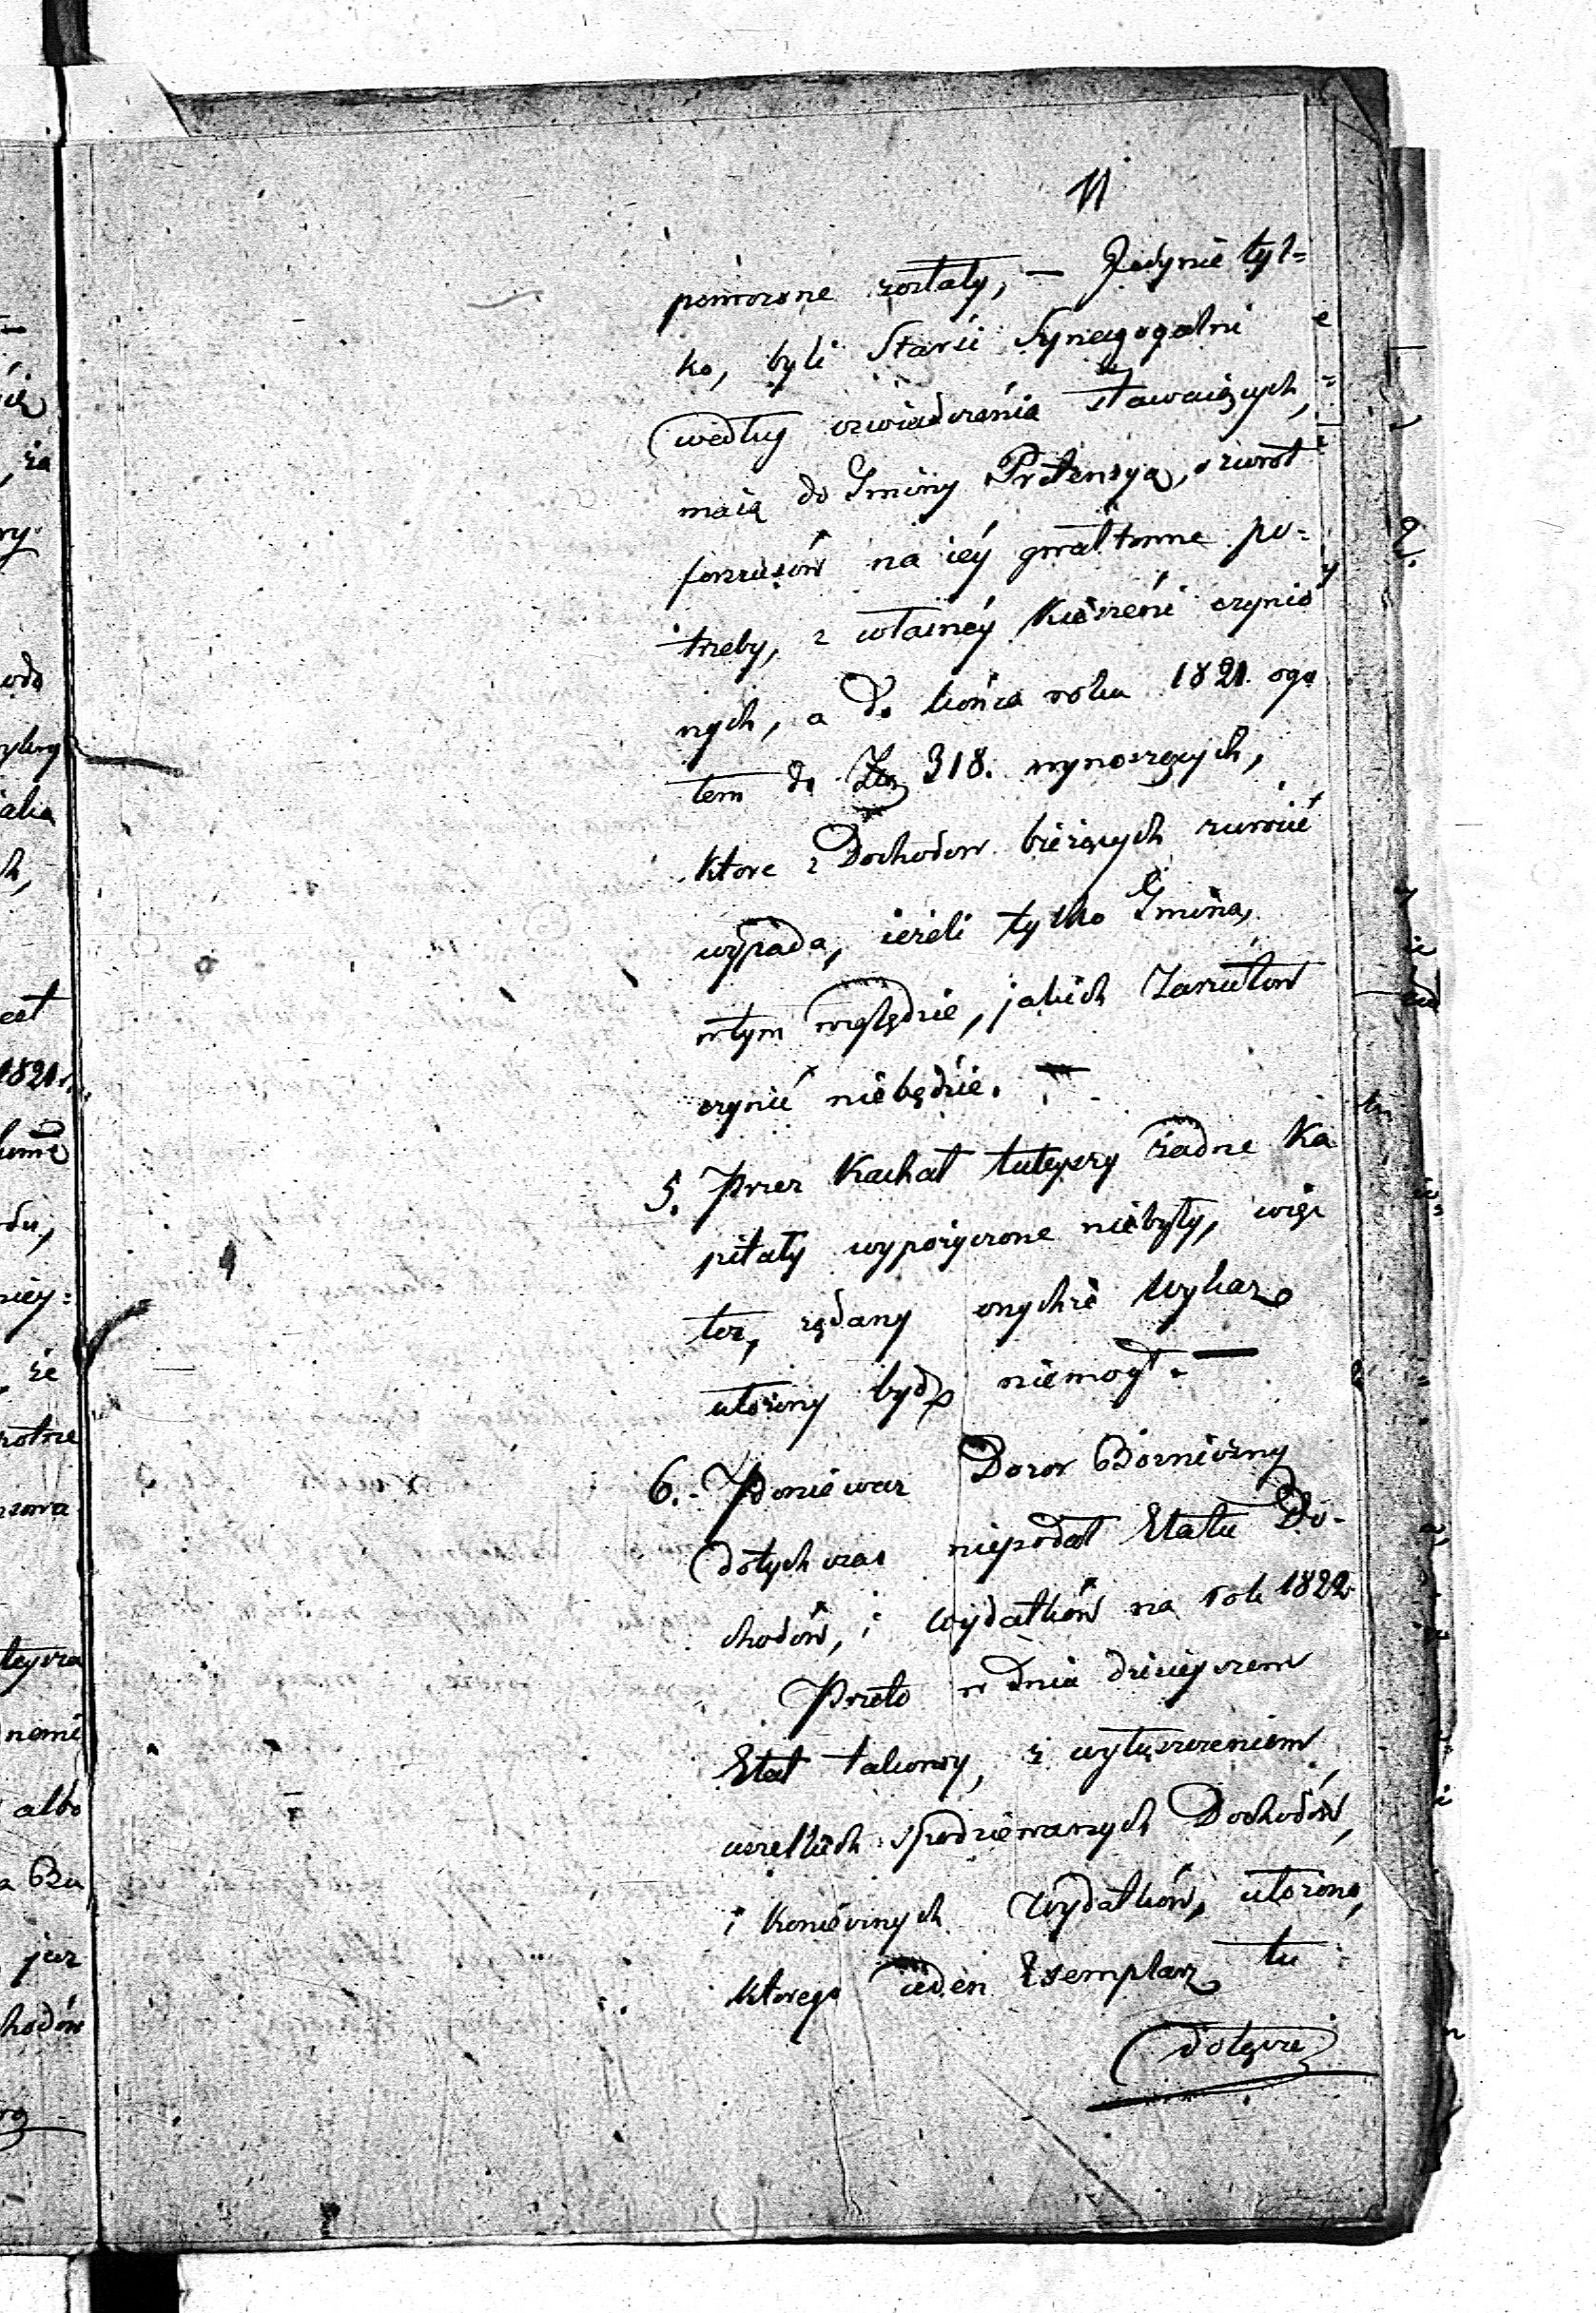 11
pomorzone zostały, — Jedynie tyl=
ko, byli Starsi Synagogalni
według oswiadczenia stawaiących,
maią do Gminy Pretensyą, o zwrot
forszusów na iéy gwałtowne po=
trzeby, z własnéy Kieszeni czynio
nych, a do końca roku 1821. ogó
łem do Złp 318. wynoszących,
ktore z Dochodow bieżących zwrócić
wypada, ieżeli tylko Gmina,
wtym względzie, jakich Zarzutow
czynić niebędzie. —
5. Przez Kachał tuteyszy żadne Ka
pitały wypożyczone niebyły, więc
też, żądany onychże Wykaz
ułożony bydź niemogł. —
6. Ponieważ Dozor Bożniczny
dotychczas niepodał Etatu Do-
chodów, i Wydatków na rok 1822
Przeto w dniu dzisieyszem
Etat takowy, z wyłuszczeniem
wszelkich spodziewanych Dochodów,
i Koniecznych Wydatków, ułożono,
ktorego ieden Exemplarz tu
dołącza